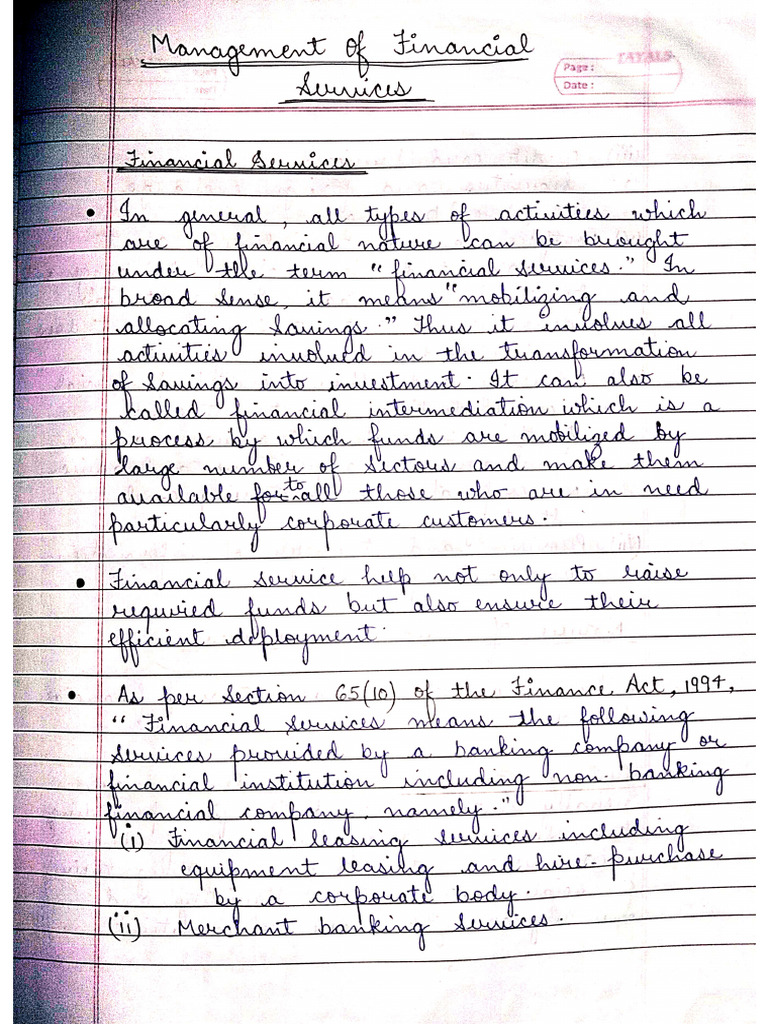 Management of Financial
Services
TAYALS
Page :
Date :
Financial Services
• In general, all types of activities which
are of financial nature can be brought
under the term "financial services." In
broad sense, it means "mobilizing and
allocating savings." Thus it involves all
activities involved in the transformation
of savings into investment. It can also be
called financial intermediation which is a
process by which funds are mobilized by
large number of sectors and make them
available for to all those who are in need
particularly corporate customers.
• Financial service help not only to raise
requried funds but also ensure their
efficient deployment.
• As per Section 65(10) of the Finance Act, 1994,
"Financial services means the following
services provided by a banking company or
financial institution including non-banking
financial company, namely."
(i) Financial leasing services including
equipment leasing and hire-purchase
by a corporate body.
(ii) Merchant banking services.